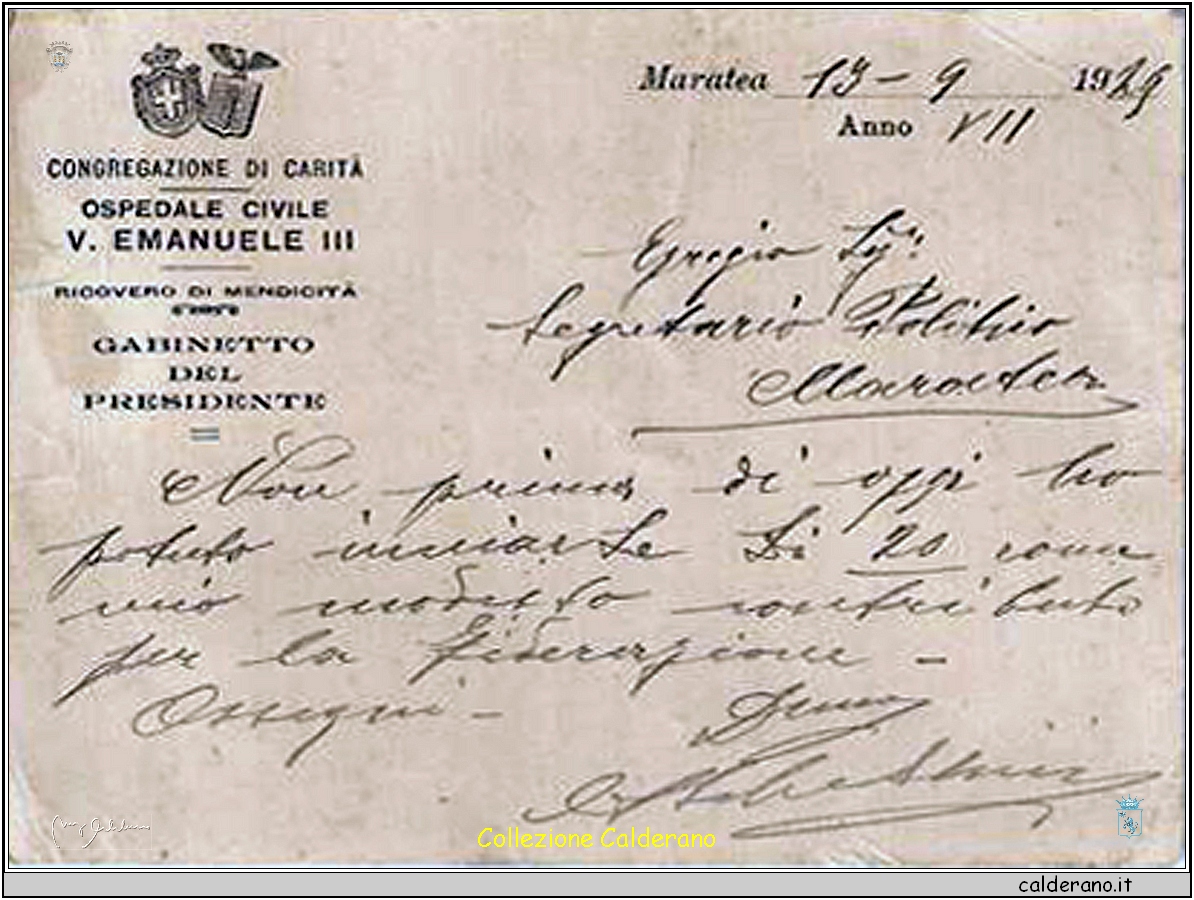 Maratea 13-9 1929
Anno VII
CONGREGAZIONE DI CARITÀ
OSPEDALE CIVILE
V. EMANUELE III
RICOVERO DI MENDICITÀ
GABINETTO
DEL
PRESIDENTE
Egregio Sig:
Segretario Politico
Maratea
Non prima di oggi ho
potuto inviarle Li 20 come
mio modesto contributo
per la Federazione -
Ossequi -
Collezione Calderano
calderano.it